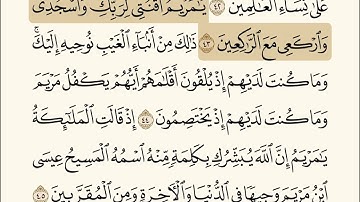 عَلَىٰ نِسَآءِ ٱلۡعَٰلَمِينَ ٤٢ يَٰمَرۡيَمُ ٱقۡنُتِي لِرَبِّكِ وَٱسۡجُدِي
وَٱرۡكَعِي مَعَ ٱلرَّٰكِعِينَ ٤٣ ذَٰلِكَ مِنۡ أَنۢبَآءِ ٱلۡغَيۡبِ نُوحِيهِ إِلَيۡكَۚ
وَمَا كُنتَ لَدَيۡهِمۡ إِذۡ يُلۡقُونَ أَقۡلَٰمَهُمۡ أَيُّهُمۡ يَكۡفُلُ مَرۡيَمَ
وَمَا كُنتَ لَدَيۡهِمۡ إِذۡ يَخۡتَصِمُونَ ٤٤ إِذۡ قَالَتِ ٱلۡمَلَٰٓئِكَةُ
يَٰمَرۡيَمُ إِنَّ ٱللَّهَ يُبَشِّرُكِ بِكَلِمَةٖ مِّنۡهُ ٱسۡمُهُ ٱلۡمَسِيحُ عِيسَى
ٱبۡنُ مَرۡيَمَ وَجِيهٗا فِي ٱلدُّنۡيَا وَٱلۡأٓخِرَةِ وَمِنَ ٱلۡمُقَرَّبِينَ ٤٥